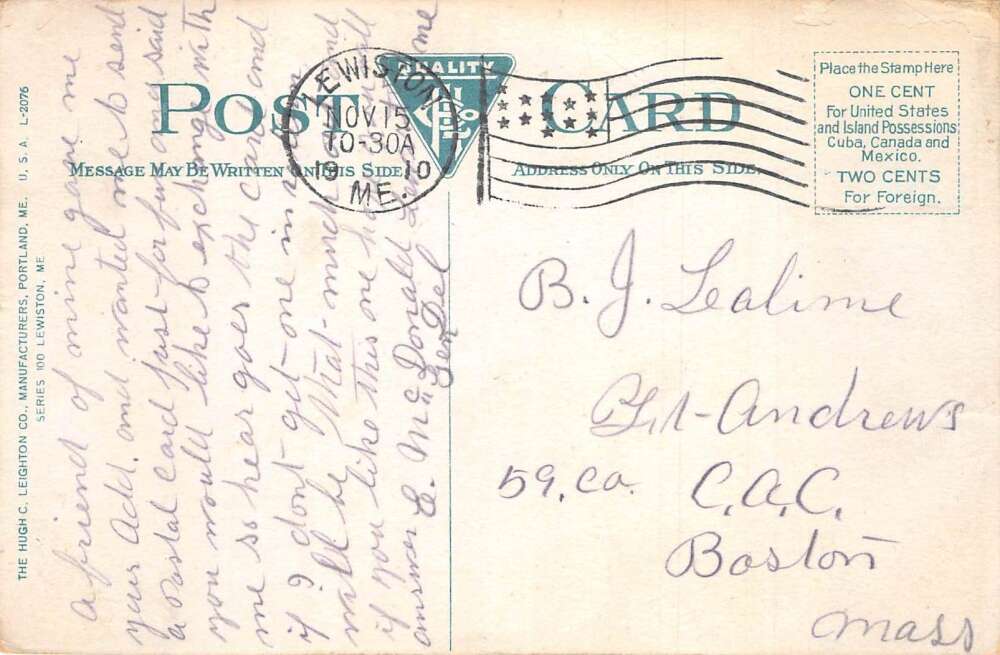 THE HUGH C. LEIGHTON CO., MANUFACTURERS, PORTLAND, ME. U. S. A. L-2076
SERIES 100 LEWISTON, ME.
POST CARD
QUALITY
MESSAGE MAY BE WRITTEN ON THIS SIDE
ADDRESS ONLY ON THIS SIDE.
LEWISTON
NOV 15
10-30A
19 10
ME.
Place the Stamp Here
ONE CENT
For United States
and Island Possessions
Cuba, Canada and
Mexico.
TWO CENTS
For Foreign.
a friend of mine gave me
your Add. and wanted me to send
a postal card just for fun and said
you would like to exchange with
me so hear goes the card and
if I dont get one in return
will be that much
if you like this one
answer E. McDonald Lewiston me
"Gen Del
B. J. Lealime
Ft Andrews
59. Co. C.A.C.
Boston
Mass